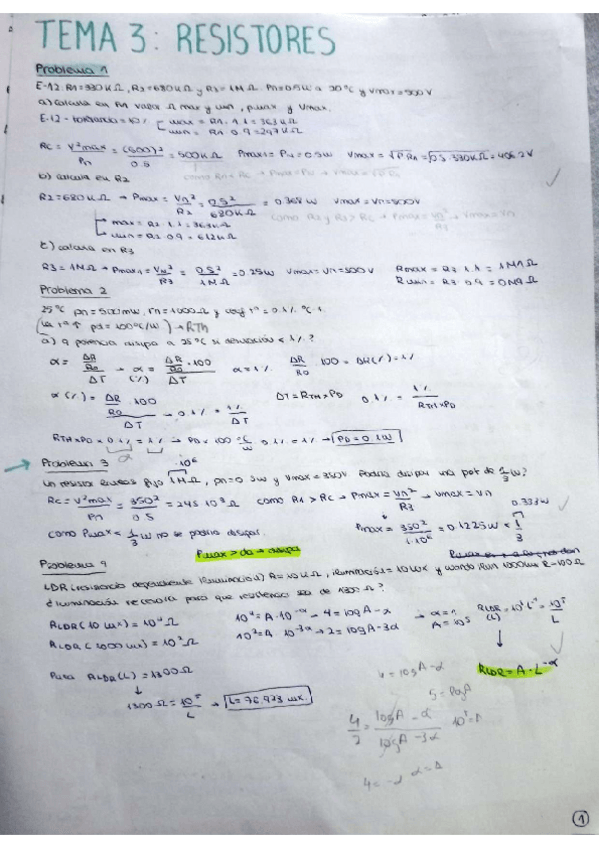 TEMA 3: RESISTORES
Problema 1
E-12. R1=330KΩ, R2=680KΩ y R3=1MΩ. Pn=0.5W a 70°C y Vmax=500V
a) calcula en R1 valor Ω max y min, pmax y Vmax.
E-12 - tolerancia=10% max = R1. 1.1=363KΩ
min = R1 0.9=297KΩ
Rc = V²max/Pn = (500)²/0.5 = 500KΩ Pmax1=Pn=0.5W Vmax=√P.Rn=√0.5.330KΩ=406.2V
b) calcula en R2
R2=680KΩ → Pmax = Vn²/R2 = 0.5²/680KΩ = 0.368W Vmax=Vn=500V
max = R2 1.1=
min = R2 0.9 = 612KΩ
c) calcula en R3
R3=1MΩ → Pmax1=Vn²/R3 = 0.5²/1MΩ=0.25W Vmax=Vn=500V Rmax=R3 1.1=1M1Ω
Rmin=R3 0.9=0M9Ω
Problema 2
25°C pn=500mW, rn=1000Ω y coef T°=0.1% °C-1.
pd=100°C/W) → RTh
a) q potencia disipa a 25°C si desviación < 1%?
α = ΔR/R0 / ΔT → α (%) = ΔR/R0 · 100 / ΔT α=1% ΔR/R0 · 100=ΔR(%)=1%
α(%) = ΔR/R0 · 100 / ΔT → 0.1% = 1%/ΔT ΔT=RTH×PD 0.1% = 1%/RTH×PD
RTH×PD × 0.1% = 1% → PD × 100 °C/W 0.1% = 1% → PD=0.1W
α
Problema 3
10⁶
Un resistor fijo 1MΩ, pn=0.5W y Vmax=350V Podria disipar una pot de 1/3 W?
Rc=V²max/Pn = 350²/0.5 = 245 10³Ω como R1>Rc → Pmax=Vn²/R3 → Vmax=Vn
0.333W
como Pmax < 1/3 W no se podria disipar. Pmax = 350²/1·10⁶ = 0.1225W < 1/3
Pmax > da → disipa
Problema 4
LDR (resistencia dependiente iluminación) R=10KΩ, iluminación=10 lux y cuando ilum 1000lux R=100Ω
¿iluminación necesaria para que resistencia sea de 1300Ω?
RLDR(10 lux)=10⁴Ω 10⁴=A·10^-α → 4=logA-α → α=1 RLDR(L)=10⁵L⁻¹=10⁵/L
RLDR(1000 lux)=10²Ω 10²=A 10^-3α → 2=logA-3α A=10⁵
Para RLDR(L)=1300Ω
RLDR=A·L^-α
1300Ω=10⁵/L → L=76.923 lux.
4=logA-α
5=logA
4/2 = logA-α / logA-3α
1